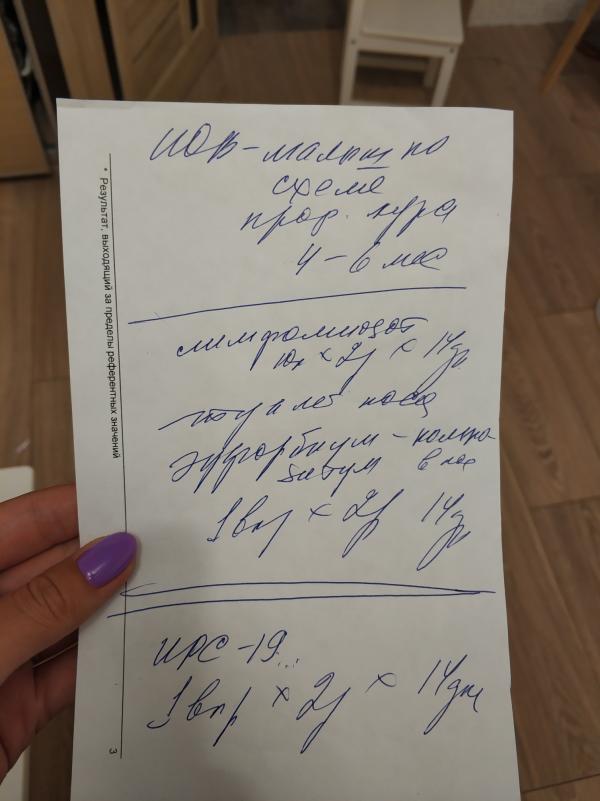 ИОВ-малыш по
схеме
прод. курса
4-6 мес
лимфомиозот
10к × 2р × 14дн
туалет носа
эуфорбиум - композитум
в нос
1 впр × 2р 14дн
ИРС-19...
1 впр × 2р × 14дни
* Результат, выходящий за пределы референтных значений
3